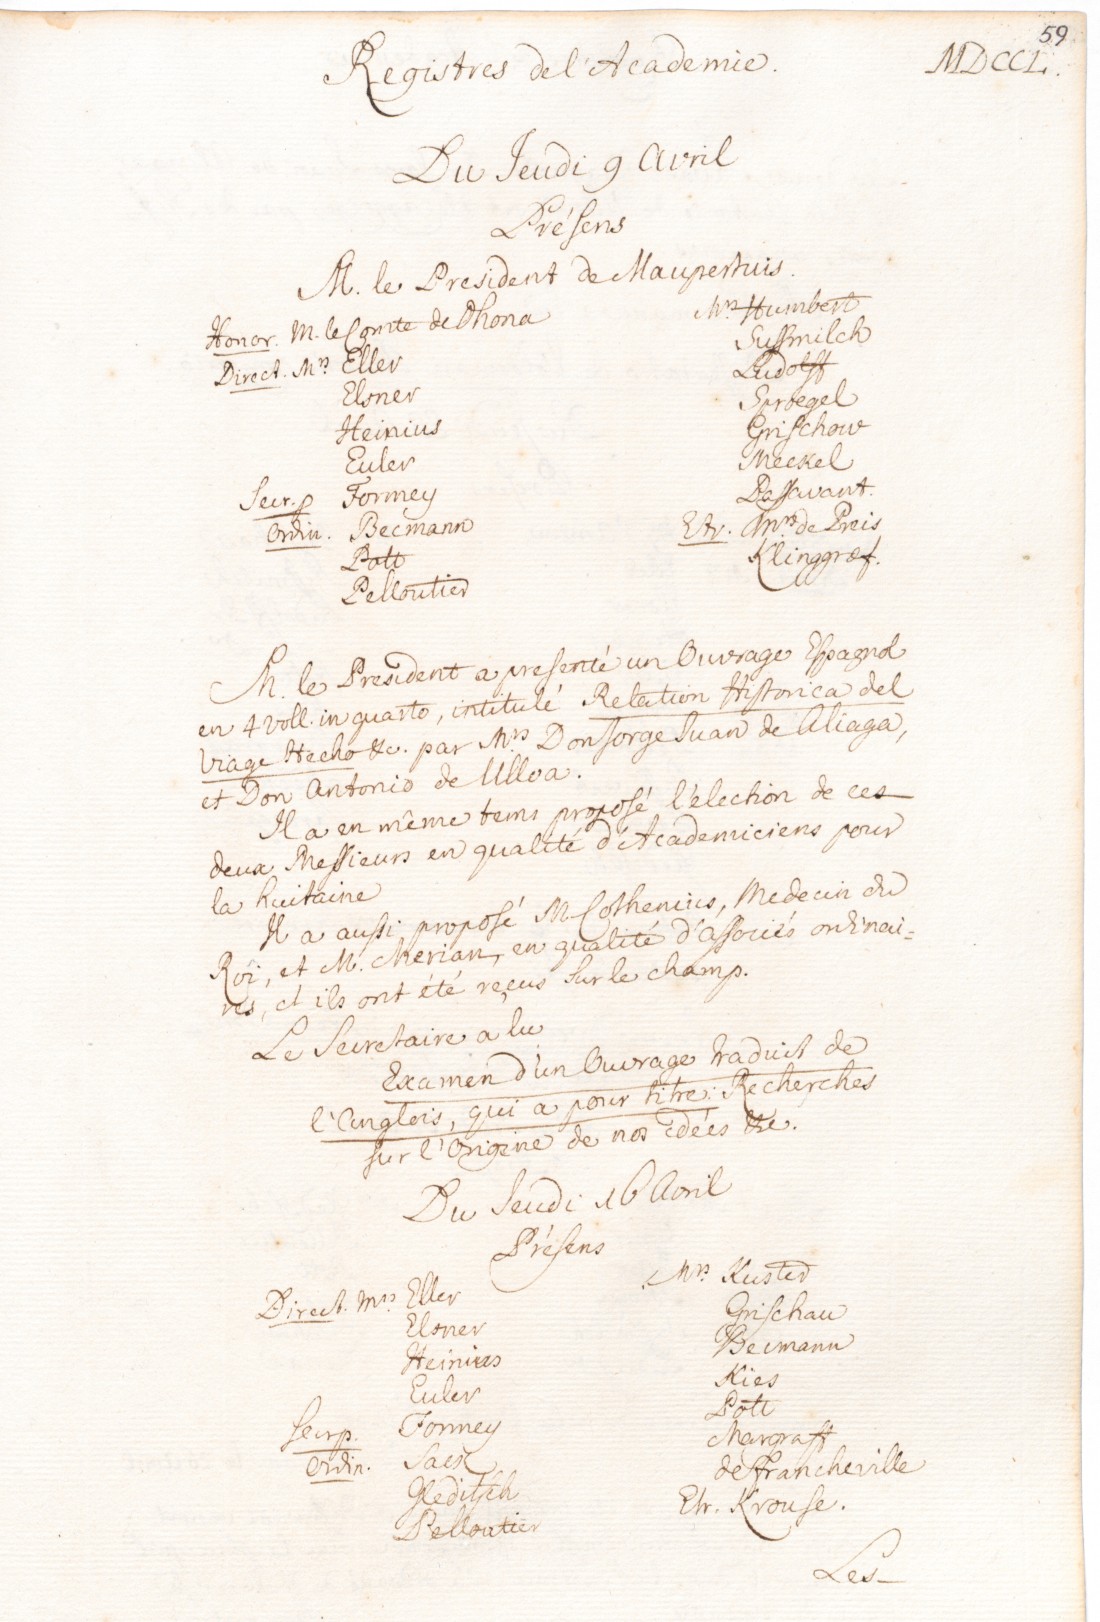 59
Registres de l'Academie.
MDCCL.
Du Jeudi 9 Avril
Présens
M. le President de Maupertuis.
Honor. M. le Comte de Dhona
Direct. Mrs Eller
Elsner
Heinius
Euler
Secr. p Formey
Ordin. Becmann
Pott
Pelloutier
Mrs Humbert
Sussmilch
Ludolff
Sproegel
Grischow
Meckel
Passavant.
Etr. Mrs de Preis
Klinggræf.
M. le President a presenté un Ouvrage Espagnol
en 4 Voll. in quarto, intitulé Relation Historica del
Viage Hecho &c. par Mrs Don Jorge Juan de Aliaga,
et Don Antonio de Ulloa.
Il a en même tems proposé l'élection de ces
deux Messieurs en qualité d'Academiciens pour
la huitaine
Il a aussi proposé M Cothenius, Medecin du
Roi, et M. Merian, en qualité d'associés ordinai=
res, et ils ont été reçus sur le champ.
Le Secretaire a lu
Examen d'un Ouvrage traduit de
l'Anglois, qui a pour titre: Recherches
sur l'Origine de nos idées &c.
Du Jeudi 16 Avril
Présens
Direct. Mrs Eller
Elsner
Heinius
Euler
Secr p. Formey
Ordin. Sack
Gleditsch
Pelloutier
Mrs Kuster
Grischau
Becmann
Kies
Pott
Margraff
de Francheville
Etr. Krouse.
Les